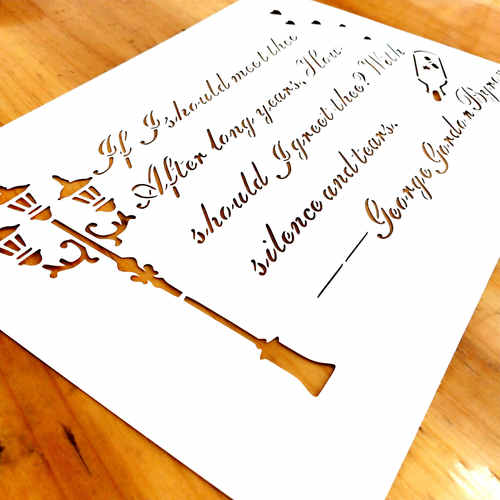 If I should meet thee
After long years, How
should I greet thee? With
silence and tears.
— George Gordon Byron